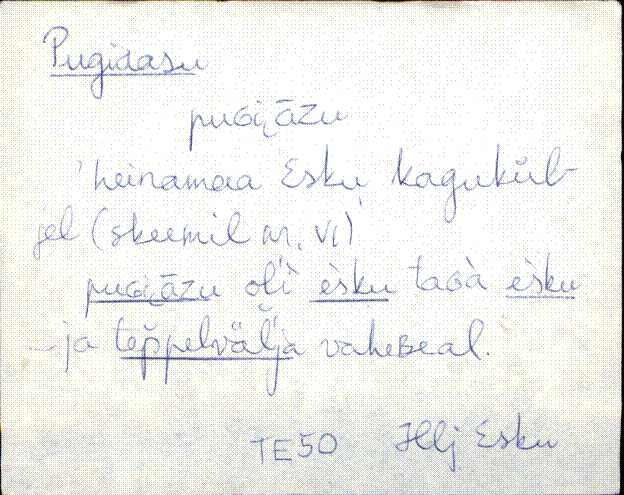 Pugidasu
puGiᴢ̨āzu
'heinamaa Esku kagukül-
jel (skeemil nr. VI)'
puGiᴢ̨āzu oĺì èsku taGà èsku
-ja teppelvälja vaheʙeal.
TE50 Hlj Esku